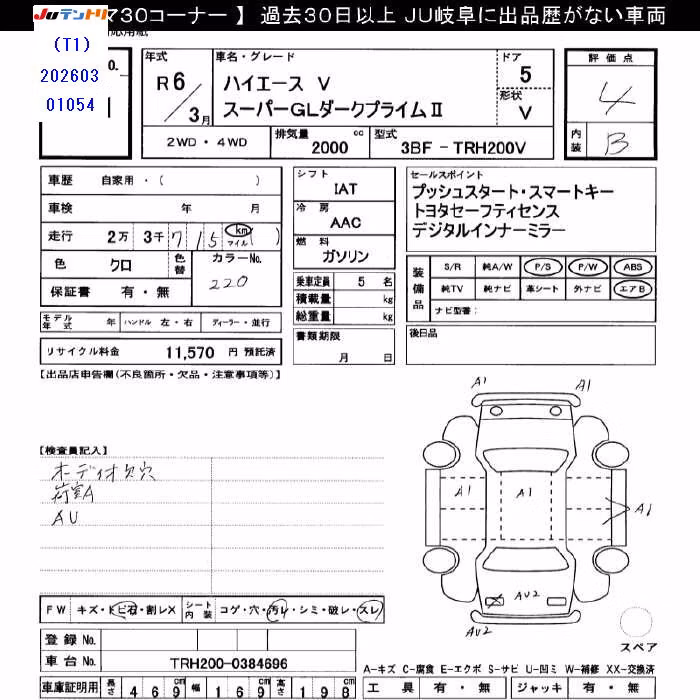 JUテントリ ア30コーナー 】 過去30日以上 JU岐阜に出品歴がない車両
(T1)
202603
01054
No.
年式
R6/3月
車名・グレード
ハイエース V
スーパーGLダークプライムⅡ
ドア
5
形状
V
評価点
4
内装
B
2WD・4WD
排気量
2000 cc
型式
3BF - TRH200V
車歴 自家用・( )
車検 年 月
走行 2万 3千 715 km マイル ( )
色 クロ 色替 カラーNo. 220
保証書 有・無
モデル年式 年 ハンドル 左・右 ディーラー・並行
リサイクル料金 11,570 円 預託済
シフト
IAT
冷房
AAC
燃料
ガソリン
乗車定員 5 名
積載量 kg
総重量 kg
書類期限
月 日
セールスポイント
プッシュスタート・スマートキー
トヨタセーフティセンス
デジタルインナーミラー
装備品
S/R 純A/W P/S P/W ABS
純TV 純ナビ 革シート 外ナビ エアB
ナビ型番:
後日品
【出品店申告欄(不良箇所・欠品・注意事項等)】
【検査員記入】
オーディオ欠穴
荷室A
AU
A1 A1
A1 A1 A1
AU2
AU2
スペア
FW キズ・トビ石・割レX シート内装 コゲ・穴・汚レ・シミ・破レ・スレ
登録 No.
車台 No. TRH200-0384696
A-キズ C-腐食 E-エクボ S-サビ U-凹ミ W-補修 XX-交換済
車庫証明用 長さ 469cm 幅 169cm 高さ 198cm
工具 有・無 ジャッキ 有・無